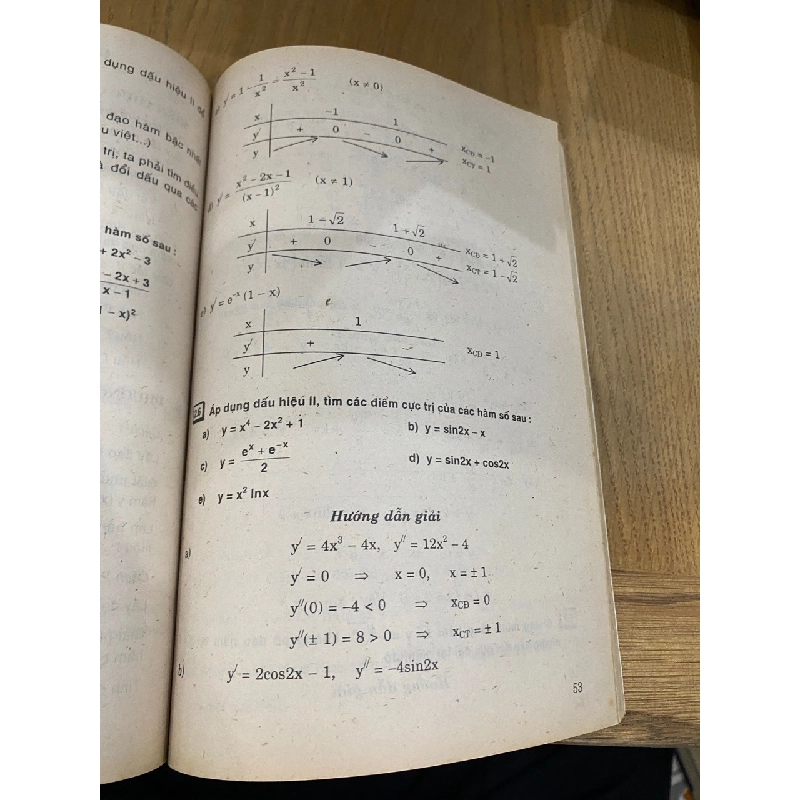 dụng dấu hiệu II số
đạo hàm bậc nhất
u việt...)
trị, ta phải tìm điều
đổi dấu qua các
hàm số sau :
+ 2x² - 3
- 2x + 3
x - 1
- x)²
y' = 1 - 1/x² = x² - 1/x² (x ≠ 0)
x -1 1
y' + 0 - 0 +
y
xCĐ = -1
xCT = 1
y' = x² - 2x - 1/(x - 1)² (x ≠ 1)
x 1 - √2 1 + √2
y' + 0 - 0 +
y
xCĐ = 1 + √2
xCT = 1 - √2
e) y' = e⁻ˣ (1 - x)
x 1
y' + -
y
xCĐ = 1
Áp dụng dấu hiệu II, tìm các điểm cực trị của các hàm số sau :
a) y = x⁴ - 2x² + 1 b) y = sin2x - x
c) y = eˣ + e⁻ˣ/2 d) y = sin2x + cos2x
e) y = x² lnx
Hướng dẫn giải
a) y' = 4x³ - 4x, y'' = 12x² - 4
y' = 0 ⇒ x = 0, x = ± 1
y''(0) = -4 < 0 ⇒ xCĐ = 0
y''(± 1) = 8 > 0 ⇒ xCT = ± 1
b) y' = 2cos2x - 1, y'' = -4sin2x
53